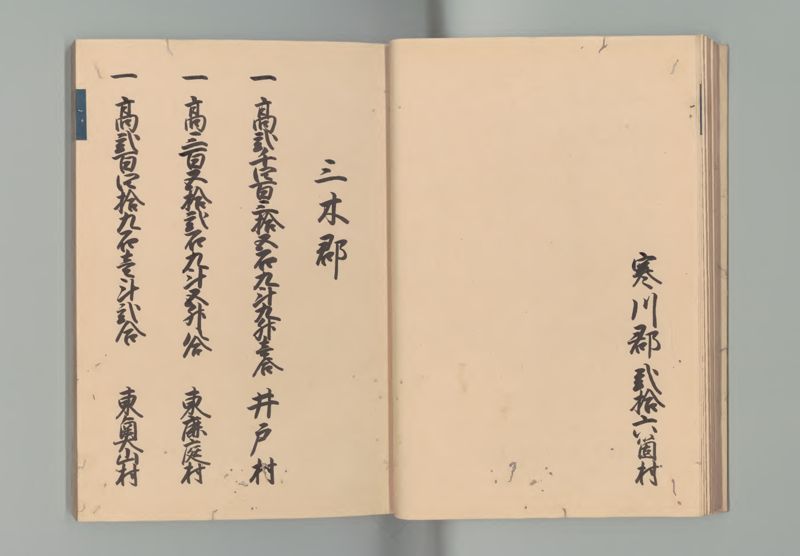 寒川郡弐拾六箇村
三木郡
一高弐千四百三拾五石九斗九升壱合 井戸村
一高三百五拾弐石九斗五升八合 東鹿庭村
一高弐百四拾九石壱斗弐合 東奥山村